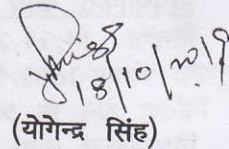 18/10/2019
(योगेन्द्र सिंह)